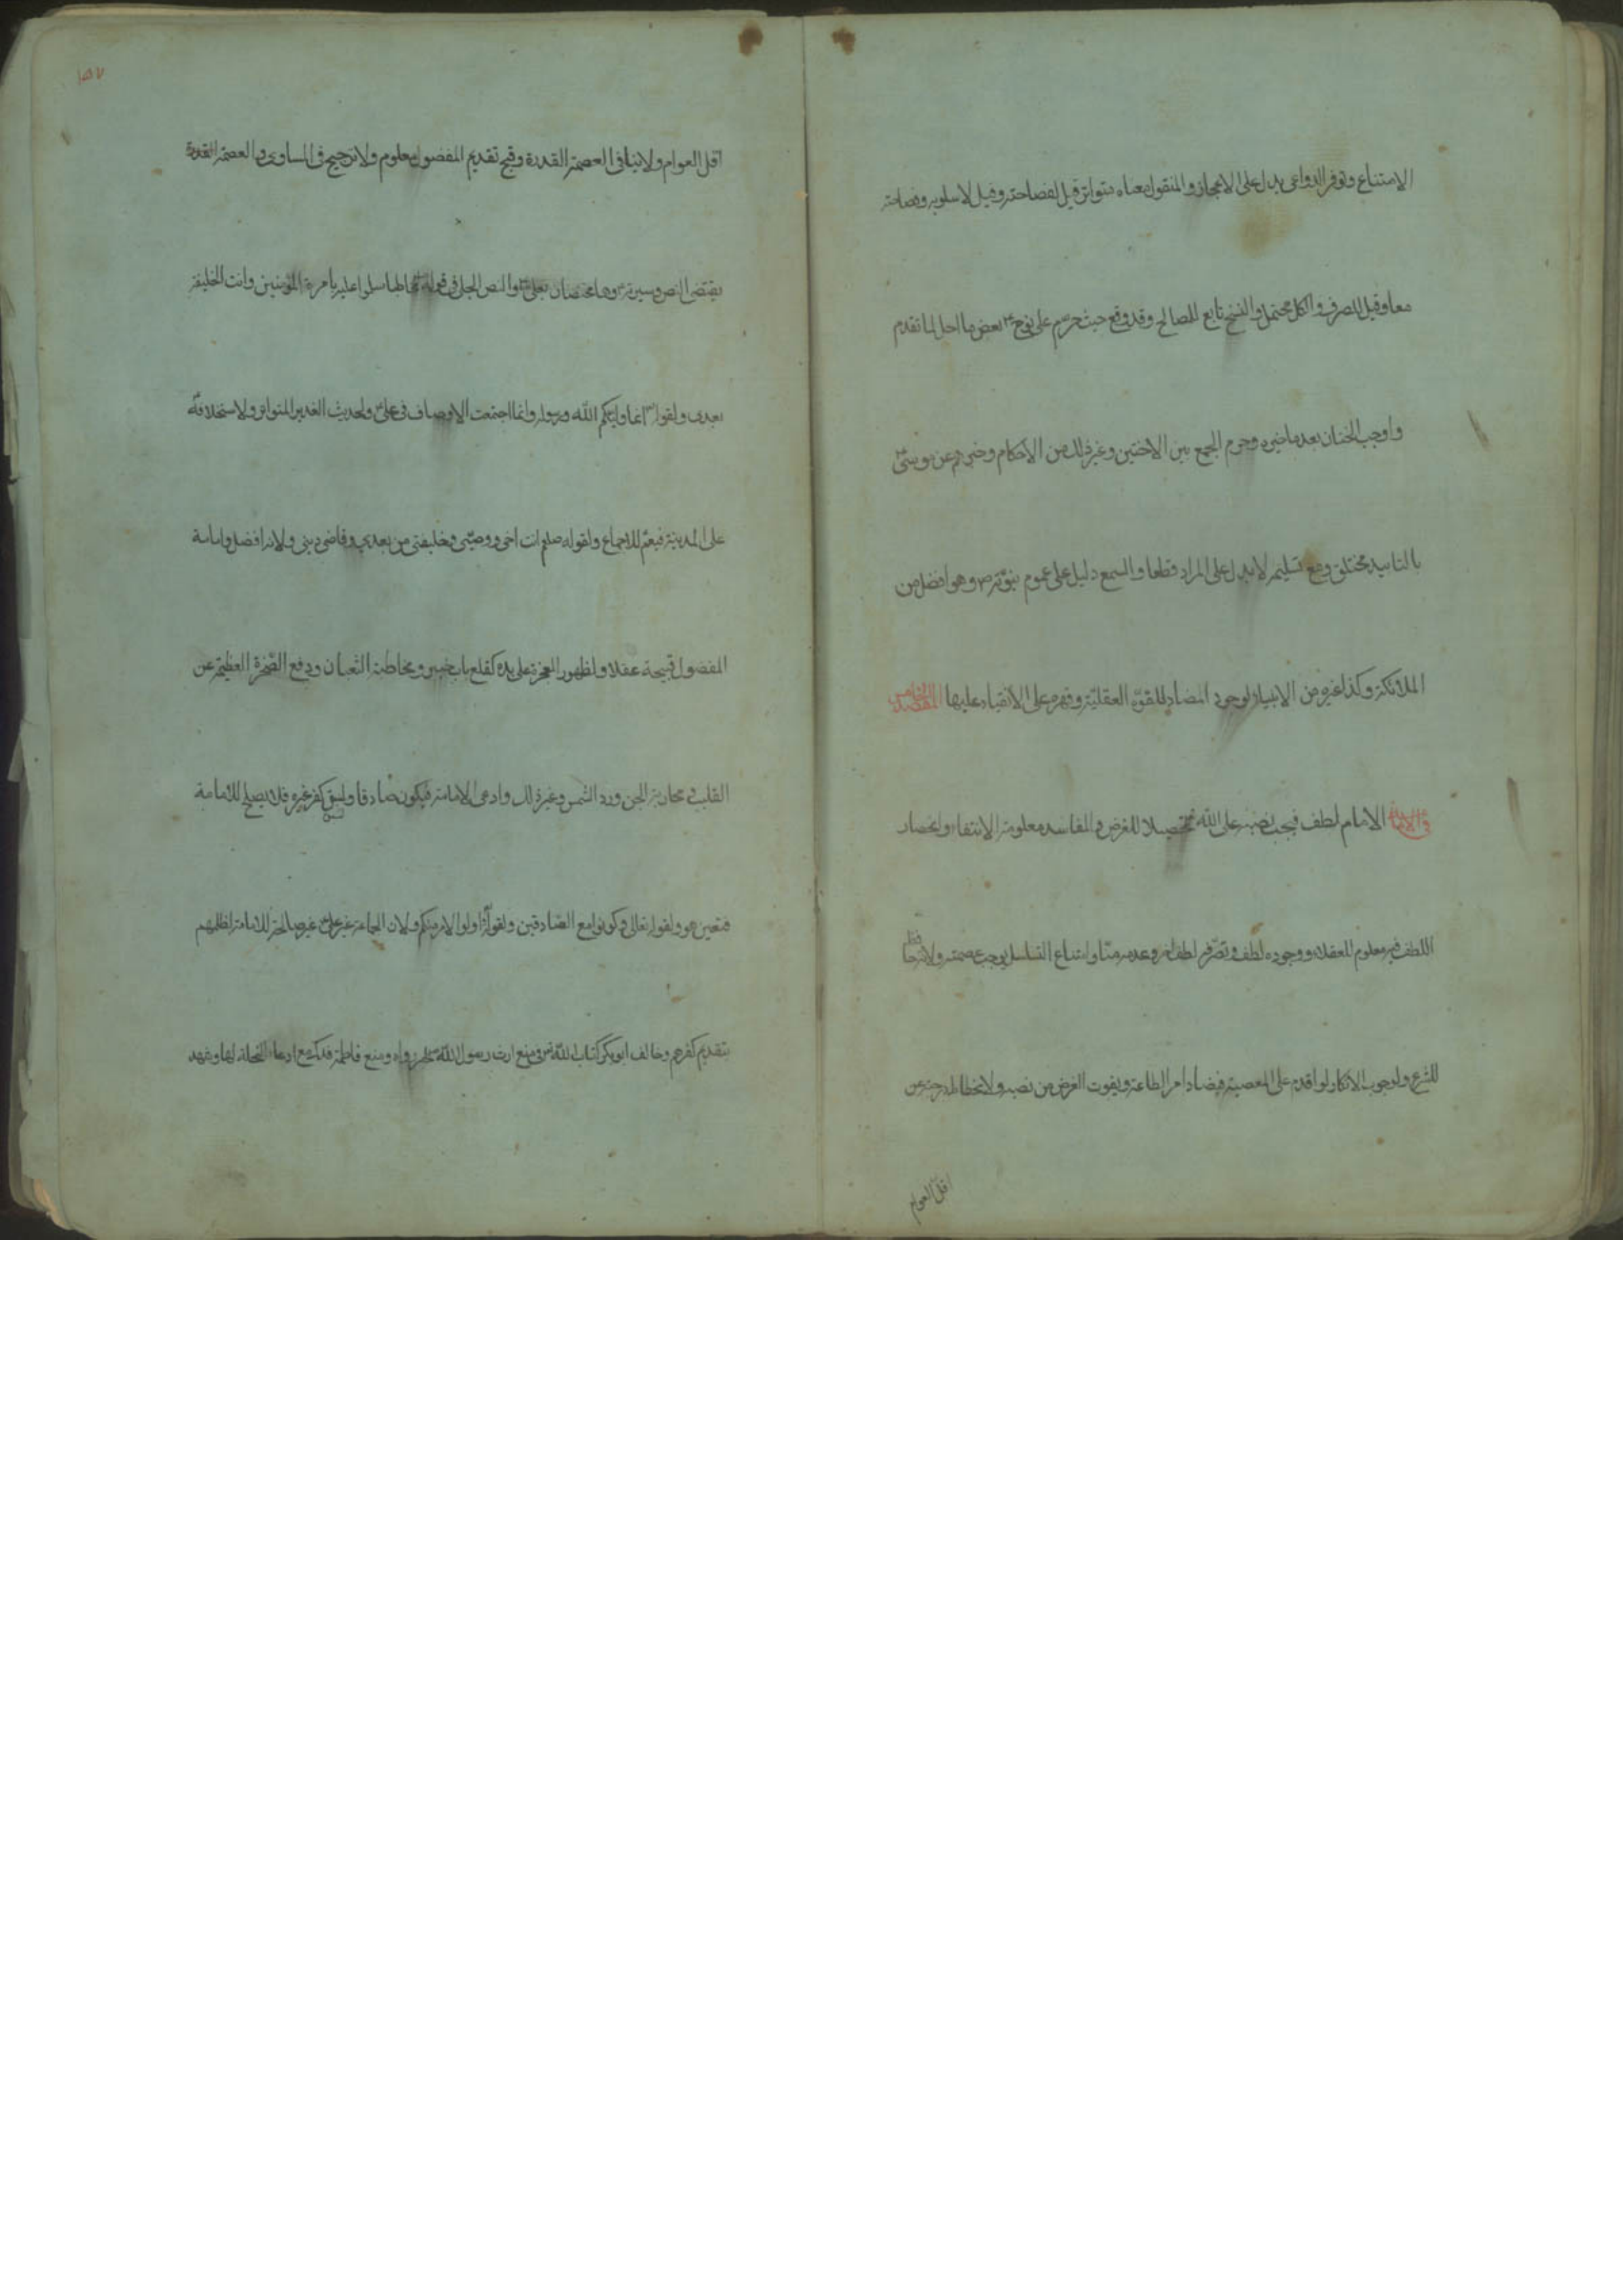 الامتناع وتوفر الدواعي يدل على الاعجاز والمنقول معناه متواترا قيل لفصاحته وقيل لاسلوبه وفصاحته
معا وقيل للصرفة والكل محتمل والنسخ تابع للمصالح وقد وقع حيث حرم على نوح بعض ما احل لما تقدم
واوجب الختان بعد تاخيره وحرم الجمع بين الاختين وغير ذلك من الاحكام وخبرهم عن موسى
بالتابيد مختلق ومع تسليمه لا يدل على المراد قطعا والسمع دليل على عموم نبوته وهو افضل من
الملائكة وكذا غيره من الانبياء لوجود المضاد للقوة العقلية وقهره على الانقياد عليها المقصد الخامس
في الامامة الامام لطف فيجب نصبه على الله تحصيلا للغرض والمفاسد معلومة الانتفاء وانحصار
اللطف فيه معلوم للعقلاء ووجوده لطف وتصرفه لطف اخر وعدمه منا وامتناع التسلسل يوجب عصمته ولانه حافظ
للشرع ولوجوب الانكار لو اقدم على المعصية فيضاد امر الطاعة ويفوت الغرض من نصبه ولانحطاط درجته عن
اقل العوام
١٥٧
اقل العوام ولا ينافي العصمة القدرة وقبح تقديم المفضول معلوم ولا ترجيح في المساوى والعصمة
يقتضى النص وسيرته وهما مختصان بعلي والنص الجلي في قوله سلموا عليه بامرة المؤمنين وانت الخليفة
بعدي ولقوله انما وليكم الله ورسوله وانما اجتمعت الاوصاف في علي ولحديث الغدير المتواتر ولاستخلافه
على المدينة فيعم للاجماع ولقوله صلعم انت اخي ووصيي وخليفتي من بعدي وقاضي ديني ولانه افضل وامامة
المفضول قبيحة عقلا ولظهور المعجزة على يده كقلع باب خيبر ومخاطبة الثعبان ورفع الصخرة العظيمة عن
القليب ومحاربة الجن ورد الشمس وغير ذلك وادعى الامامة فيكون صادقا ولسبق كفر غيره فلا يصلح للامامة
فتعين هو ولقوله تعالى وكونوا مع الصادقين ولقوله واولوا الامر منكم ولان الجماعة غير علي غير صالحة للامامة لظلمهم
بتقديم كفرهم وخالف ابو بكر كتاب الله في منع ارث رسول الله بخبر رواه ومنع فاطمة فدك مع ادعاء النحلة لها وشهد